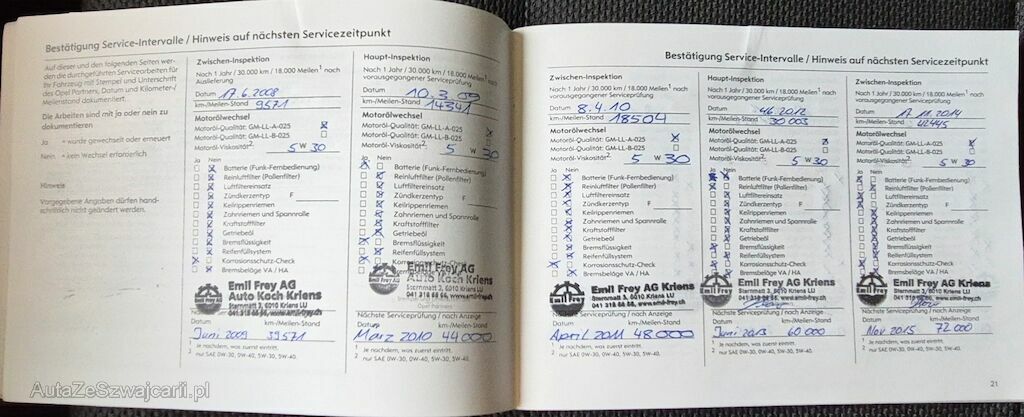 Bestätigung Service-Intervalle / Hinweis auf nächsten Servicezeitpunkt
Auf dieser und den folgenden Seiten wer-
den die durchgeführten Servicearbeiten für
Ihr Fahrzeug mit Stempel und Unterschrift
des Opel Partners, Datum und Kilometer-/
Meilenstand dokumentiert.
Die Arbeiten sind mit ja oder nein zu
dokumentieren
Ja = wurde gewechselt oder erneuert
Nein = kein Wechsel erforderlich
Hinweis
Vorgegebene Angaben dürfen hand-
schriftlich nicht geändert werden.
Zwischen-Inspektion
Nach 1 Jahr / 30.000 km / 18.000 Meilen1 nach
Auslieferung
Datum 17.6.2008
km-/Meilen-Stand 9571
Motorölwechsel
Motoröl-Qualität: GM-LL-A-025
Motoröl-Qualität: GM-LL-B-025
Motoröl-Viskosität2: 5 W 30
Ja Nein
Batterie (Funk-Fernbedienung)
Reinluftfilter (Pollenfilter)
Luftfiltereinsatz
Zündkerzentyp F
Keilrippenriemen
Zahnriemen und Spannrolle
Kraftstofffilter
Getriebeöl
Bremsflüssigkeit
Reifenfüllsystem
Korrosionsschutz-Check
Bremsbeläge VA / HA
Emil Frey AG
Auto Koch Kriens
Sternmatt 3, 6010 Kriens LU
041 318 66 66, www.emil-frey.ch
Nächste Serviceprüfung / nach Anzeige
Datum km-/Meilen-Stand
Juni 2009 39571
1 Je nachdem, was zuerst eintritt.
2 nur SAE 0W-30, 0W-40, 5W-30, 5W-40.
Haupt-Inspektion
Nach 1 Jahr / 30.000 km / 18.000 Meilen1 nach
vorausgegangener Serviceprüfung
Datum 10.3.09
km-/Meilen-Stand 14341
Motorölwechsel
Motoröl-Qualität: GM-LL-A-025
Motoröl-Qualität: GM-LL-B-025
Motoröl-Viskosität2: 5 W 30
Ja Nein
Batterie (Funk-Fernbedienung)
Reinluftfilter (Pollenfilter)
Luftfiltereinsatz
Zündkerzentyp F
Keilrippenriemen
Zahnriemen und Spannrolle
Kraftstofffilter
Getriebeöl
Bremsflüssigkeit
Reifenfüllsystem
Korrosionsschutz-Check
Emil Frey AG
Auto Koch Kriens
Sternmatt 3, 6010 Kriens LU
041 318 66 66, www.emil-frey.ch
Nächste Serviceprüfung / nach Anzeige
Datum km-/Meilen-Stand
März 2010 44000
1 Je nachdem, was zuerst eintritt.
2 nur SAE 0W-30, 0W-40, 5W-30, 5W-40.
Bestätigung Service-Intervalle / Hinweis auf nächsten Servicezeitpunkt
Zwischen-Inspektion
Nach 1 Jahr / 30.000 km / 18.000 Meilen1 nach
vorausgegangener Serviceprüfung
Datum 8.4.10
km-/Meilen-Stand 18504
Motorölwechsel
Motoröl-Qualität: GM-LL-A-025
Motoröl-Qualität: GM-LL-B-025
Motoröl-Viskosität2: 5 W 30
Ja Nein
Batterie (Funk-Fernbedienung)
Reinluftfilter (Pollenfilter)
Luftfiltereinsatz
Zündkerzentyp F
Keilrippenriemen
Zahnriemen und Spannrolle
Kraftstofffilter
Getriebeöl
Bremsflüssigkeit
Reifenfüllsystem
Korrosionsschutz-Check
Bremsbeläge VA / HA
Emil Frey AG Kriens
Sternmatt 3, 6010 Kriens LU
041 318 66 66, www.emil-frey.ch
Nächste Serviceprüfung / nach Anzeige
Datum km-/Meilen-Stand
April 2011 48000
1 Je nachdem, was zuerst eintritt.
2 nur SAE 0W-30, 0W-40, 5W-30, 5W-40.
Haupt-Inspektion
Nach 1 Jahr / 30.000 km / 18.000 Meilen1 nach
vorausgegangener Serviceprüfung
Datum
km-/Meilen-Stand 30 003
Motorölwechsel
Motoröl-Qualität: GM-LL-A-025
Motoröl-Qualität: GM-LL-B-025
Motoröl-Viskosität2: 5 W 30
Ja Nein
Batterie (Funk-Fernbedienung)
Reinluftfilter (Pollenfilter)
Luftfiltereinsatz
Zündkerzentyp F
Keilrippenriemen
Zahnriemen und Spannrolle
Kraftstofffilter
Getriebeöl
Bremsflüssigkeit
Reifenfüllsystem
Korrosionsschutz-Check
Bremsbeläge VA / HA
Emil Frey AG Kriens
Sternmatt 3, 6010 Kriens LU
041 318 66 66, www.emil-frey.ch
Nächste Serviceprüfung / nach Anzeige
Datum km-/Meilen-Stand
Juni 2013 60 000
1 Je nachdem, was zuerst eintritt.
2 nur SAE 0W-30, 0W-40, 5W-30, 5W-40.
Zwischen-Inspektion
Nach 1 Jahr / 30.000 km / 18.000 Meilen1 nach
vorausgegangener Serviceprüfung
Datum 17.11.2014
km-/Meilen-Stand 42445
Motorölwechsel
Motoröl-Qualität: GM-LL-A-025
Motoröl-Qualität: GM-LL-B-025
Motoröl-Viskosität2: 5 W 30
Ja Nein
Batterie (Funk-Fernbedienung)
Reinluftfilter (Pollenfilter)
Luftfiltereinsatz
Zündkerzentyp F
Keilrippenriemen
Zahnriemen und Spannrolle
Kraftstofffilter
Getriebeöl
Bremsflüssigkeit
Reifenfüllsystem
Korrosionsschutz-Check
Bremsbeläge VA / HA
Emil Frey AG Kriens
Sternmatt 3, 6010 Kriens LU
041 318 66 66, www.emil-frey.ch
Nächste Serviceprüfung / nach Anzeige
Datum km-/Meilen-Stand
Nov 2015 72 000
1 Je nachdem, was zuerst eintritt.
2 nur SAE 0W-30, 0W-40, 5W-30, 5W-40.
21
AutaZeSzwajcarii.pl